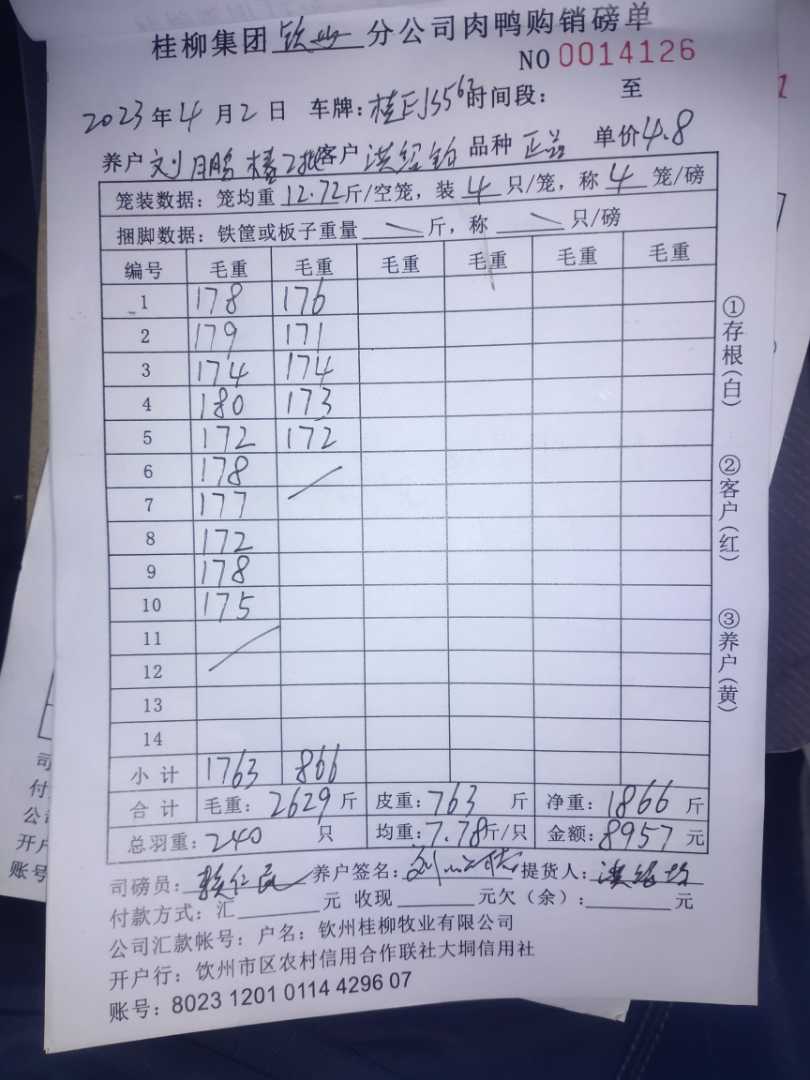 桂柳集团钦州分公司肉鸭购销磅单
NO 0014126
2023年4月2日 车牌:桂 时间段: 至
养户 刘 鹏 客户 洪 品种 单价4.8
笼装数据:笼均重 12.72斤/空笼,装 4 只/笼,称 4 笼/磅
捆脚数据:铁筐或板子重量 斤,称 只/磅
编号 毛重 毛重 毛重 毛重 毛重 毛重
1 178 176
2 179 171
3 174 174
4 180 173
5 172 172
6 178
7 177
8 172
9 178
10 175
11
12
13
14
小计 1763 866
合计 毛重:2629斤 皮重:763斤 净重:1866斤
总羽重:240只 均重:7.78斤/只 金额:8957元
司磅员: 养户签名: 提货人:
付款方式:汇 元 收现 元欠(余): 元
公司汇款帐号:户名:钦州桂柳牧业有限公司
开户行:钦州市区农村信用合作联社大垌信用社
账号:8023 1201 0114 4296 07
①存根(白)
②客户(红)
③养户(黄)